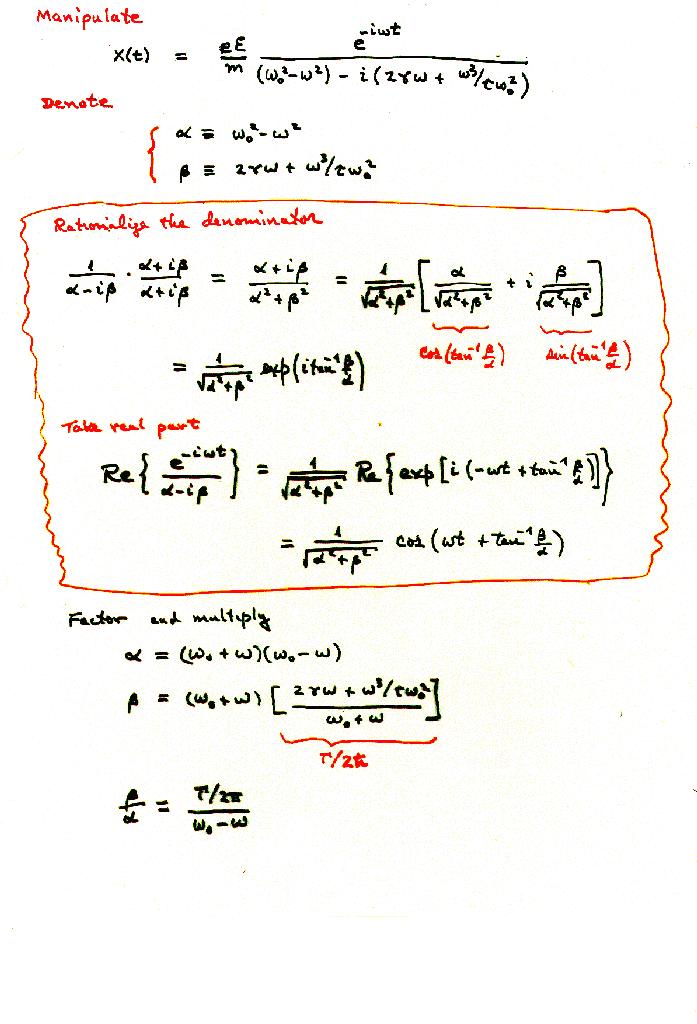 Manipulate
x(t) = eE/m e^{-iωt} / ((ω₀²-ω²) - i(2γω + ω³/τω₀²))
Denote
α ≡ ω₀²-ω²
β ≡ 2γω + ω³/τω₀²
Rationalize the denominator
1/(α-iβ) · (α+iβ)/(α+iβ) = (α+iβ)/(α²+β²) = 1/√(α²+β²) [α/√(α²+β²) + i β/√(α²+β²)]
cos(tan⁻¹ β/α) sin(tan⁻¹ β/α)
= 1/√(α²+β²) exp(i tan⁻¹ β/α)
Take real part
Re{e^{-iωt}/(α-iβ)} = 1/√(α²+β²) Re{exp[i(-ωt + tan⁻¹ β/α)]}
= 1/√(α²+β²) cos(ωt + tan⁻¹ β/α)
Factor and multiply
α = (ω₀+ω)(ω₀-ω)
β = (ω₀+ω) [(2γω + ω³/τω₀²)/(ω₀+ω)]
Γ/2ħ
β/α = (Γ/2π)/(ω₀-ω)